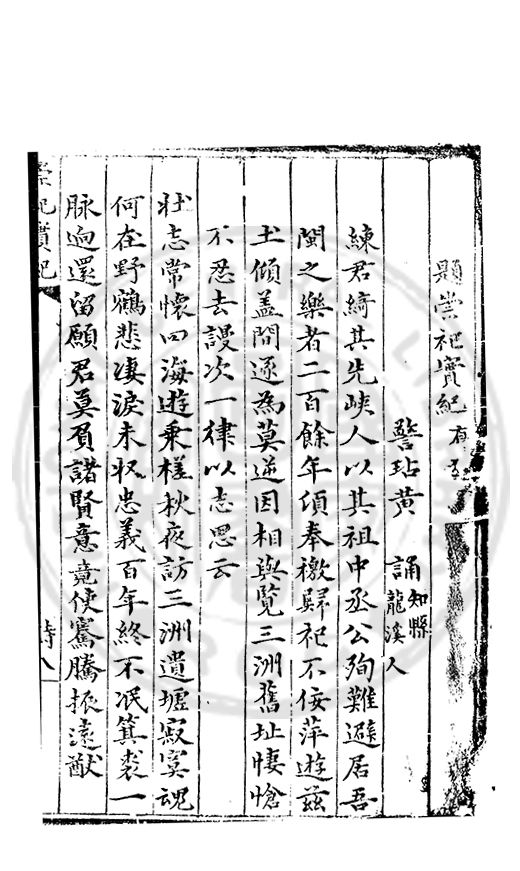 題崇祀實紀有引
誥玷黃 誦知縣龍溪人
練君綺其先峽人以其祖中丞公殉難避居吾
閩之樂者二百餘年頃奉檄歸祀不佞萍遊茲
土傾盖間遂為莫逆因相與覽三洲舊址悽愴
不忍去謾次一律以志思云
壮志常懷四海遊乘槎秋夜訪三洲遺墟寂寞魂
何在野鶴悲凄淚未收忠義百年終不泯箕裘一
脉迥還留願君莫負諸賢意竟使騫騰振遠猷
崇祀實紀
詩八